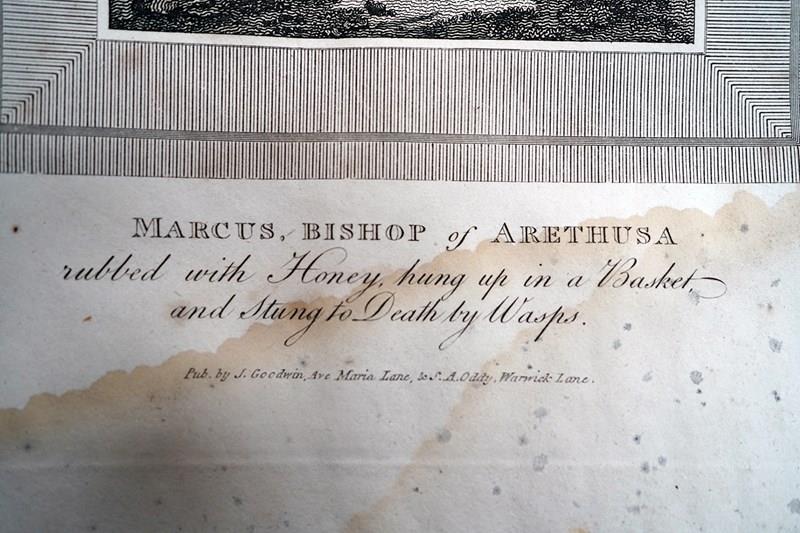 MARCUS, BISHOP of ARETHUSA
rubbed with Honey, hung up in a Basket,
and Stung to Death by Wasps.
Pub. by J. Goodwin, Ave Maria Lane, & S. A. Oddy, Warwick Lane.